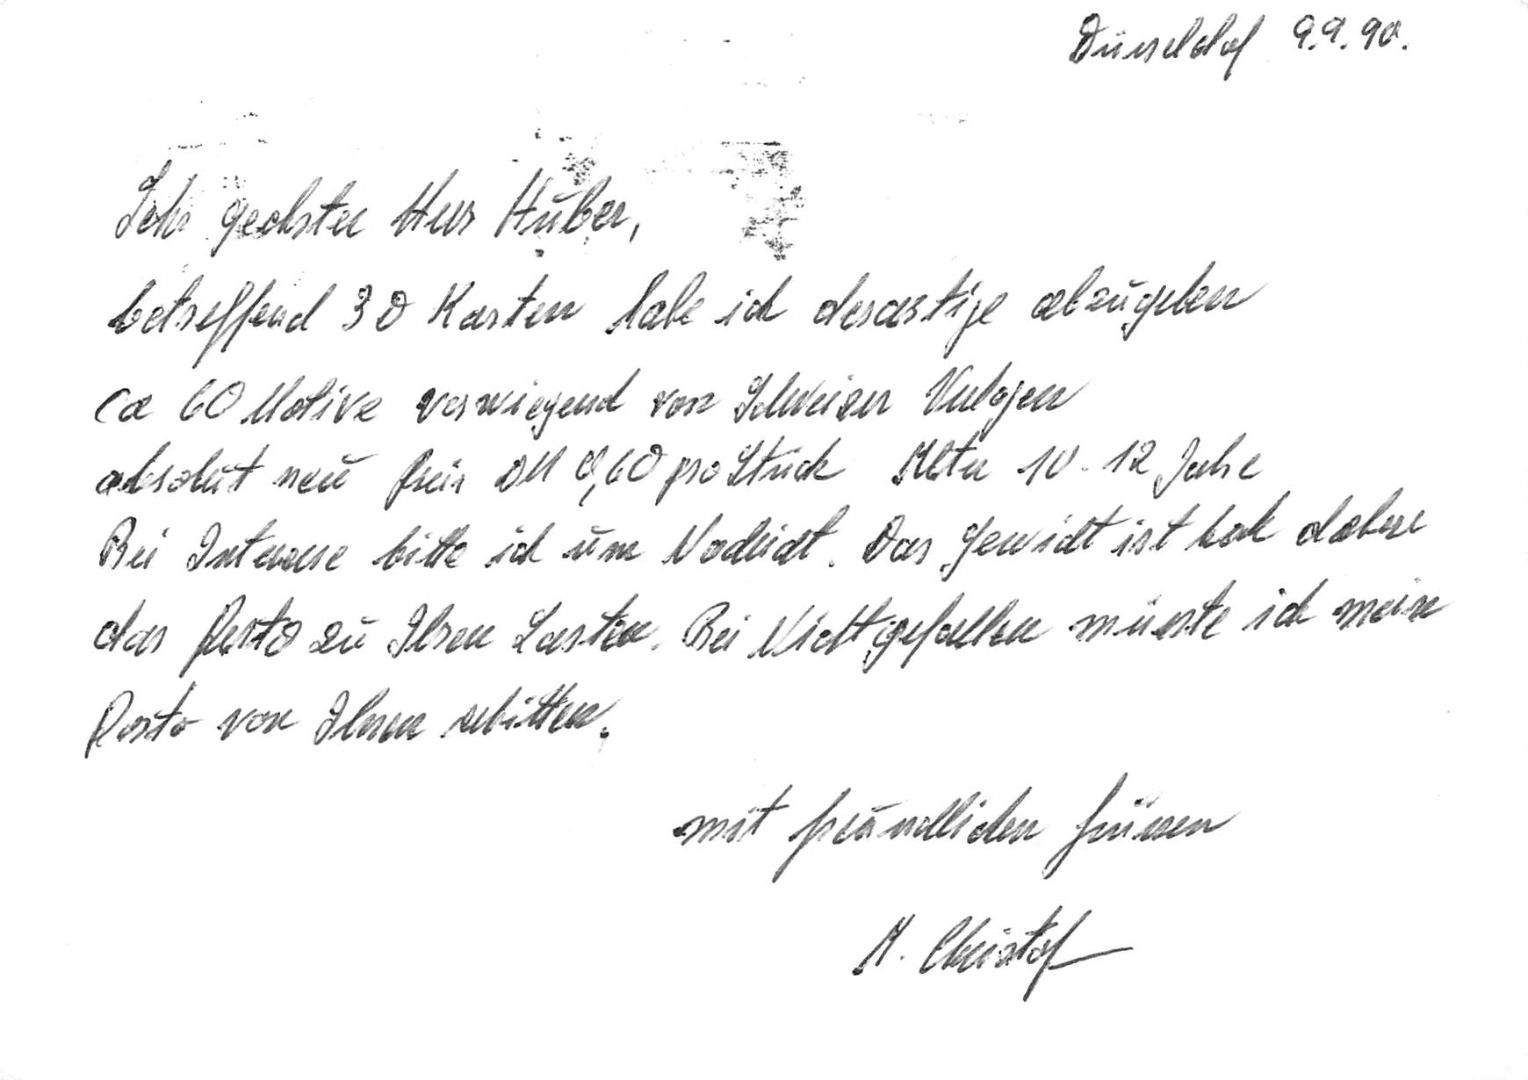 Düsseldof 9.9.90.
Sehr geehrter Herr Huber,
betreffend 3D Karten habe ich derartige abzugeben
ca 60 Motive vorwiegend von Schweizer Verlagen
absolut neu Preis DM 0,60 pro Stück Alter 10-12 Jahre
Bei Interesse bitte ich um Nachricht. Das Gewicht ist hoch daher
das Porto zu Ihren Lasten. Bei Nichtgefallen müsste ich mein
Porto von Ihnen erbitten.
mit freundlichen Grüssen
Christof